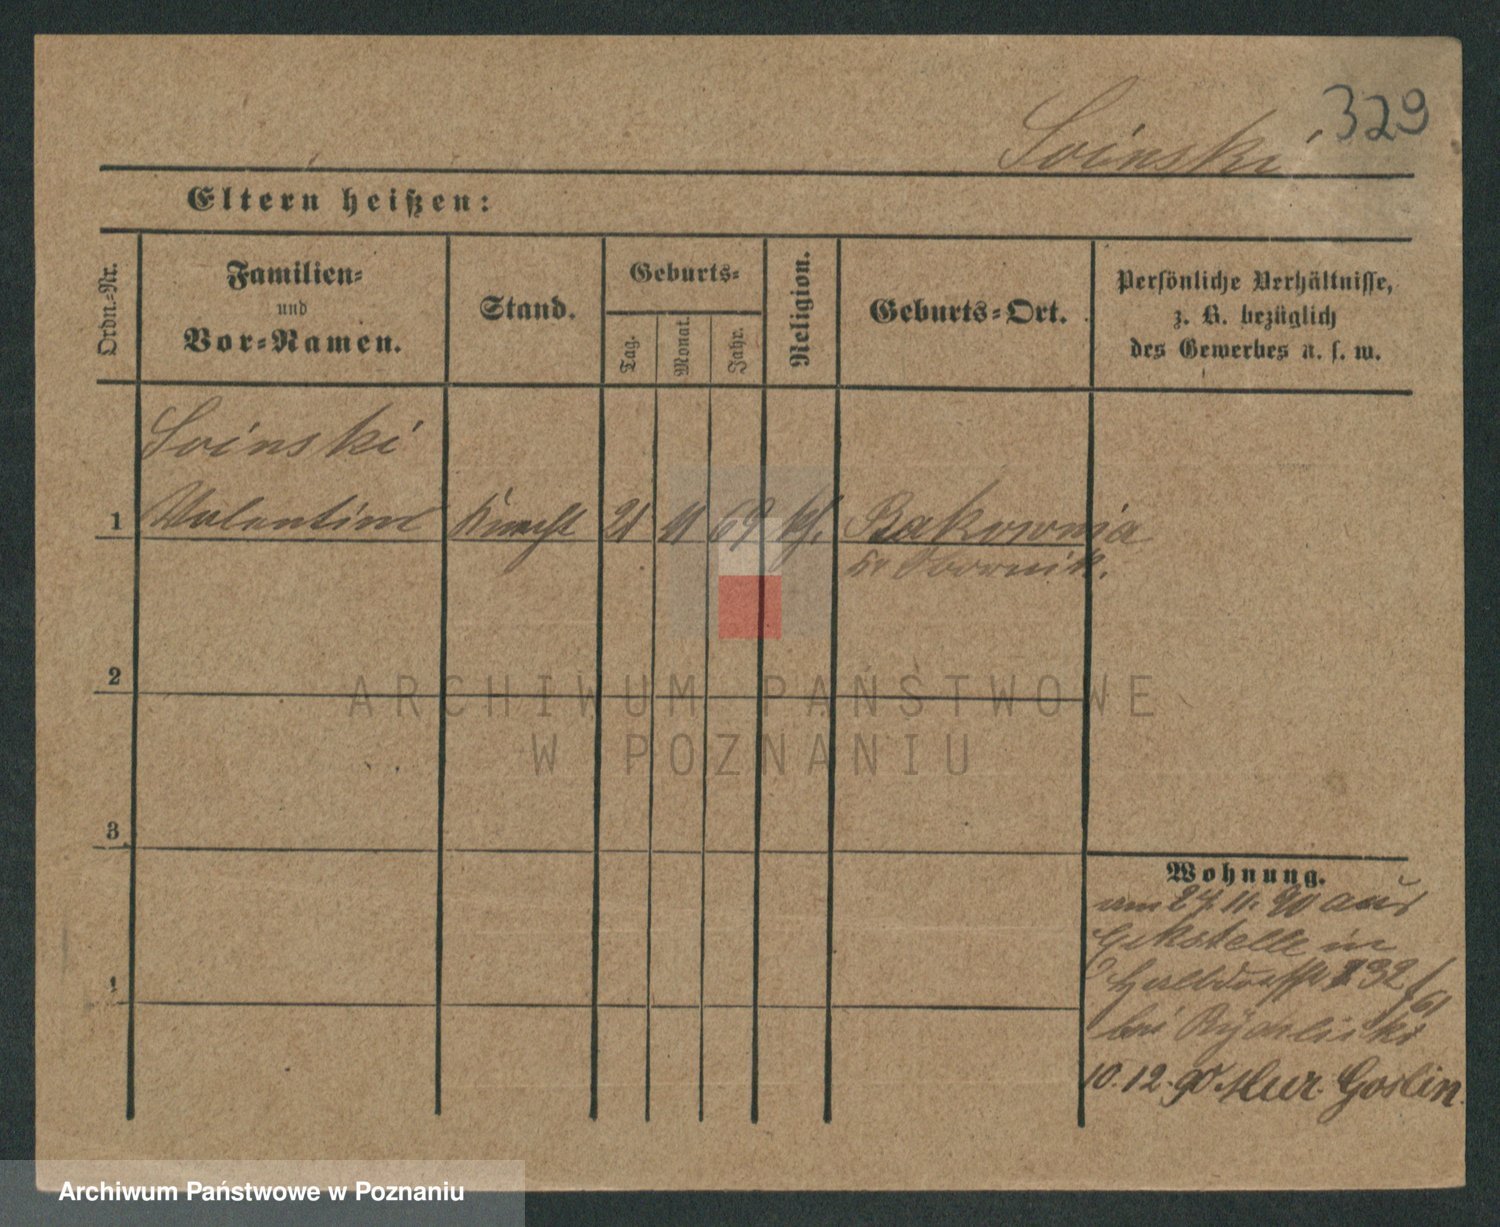 329
Soinski
Eltern heißen:
Ordn.-Nr.
Familien-
und
Vor-Namen.
Stand.
Geburts-
Tag.
Monat.
Jahr.
Religion.
Geburts-Ort.
Persönliche Verhältnisse,
z. B. bezüglich
des Gewerbes u. s. w.
Soinski
1 Valentin Knecht 21 11 69 kth. Bakownia
Kr Obornik.
2
3
4
ARCHIWUM PAŃSTWOWE
W POZNANIU
Wohnung.
am 27.11.90 aus
Eckstelle in
Halbdorffstr 32
bei Rychlicki
10.12.90 Mur. Goslin.
Archiwum Państwowe w Poznaniu